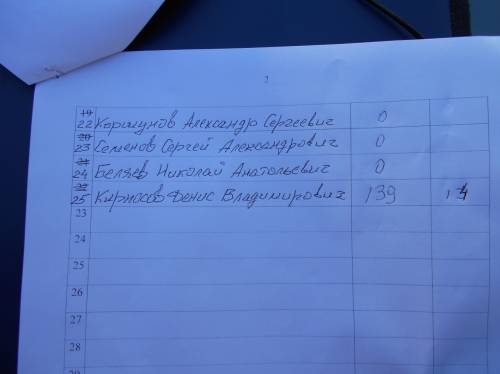 19 22 Коршунов Александр Сергеевич 0
20 23 Семенов Сергей Александрович 0
21 24 Беляев Николай Анатольевич 0
22 25 Кирносов Денис Владимирович 139
23
24
25
26
27
28
29